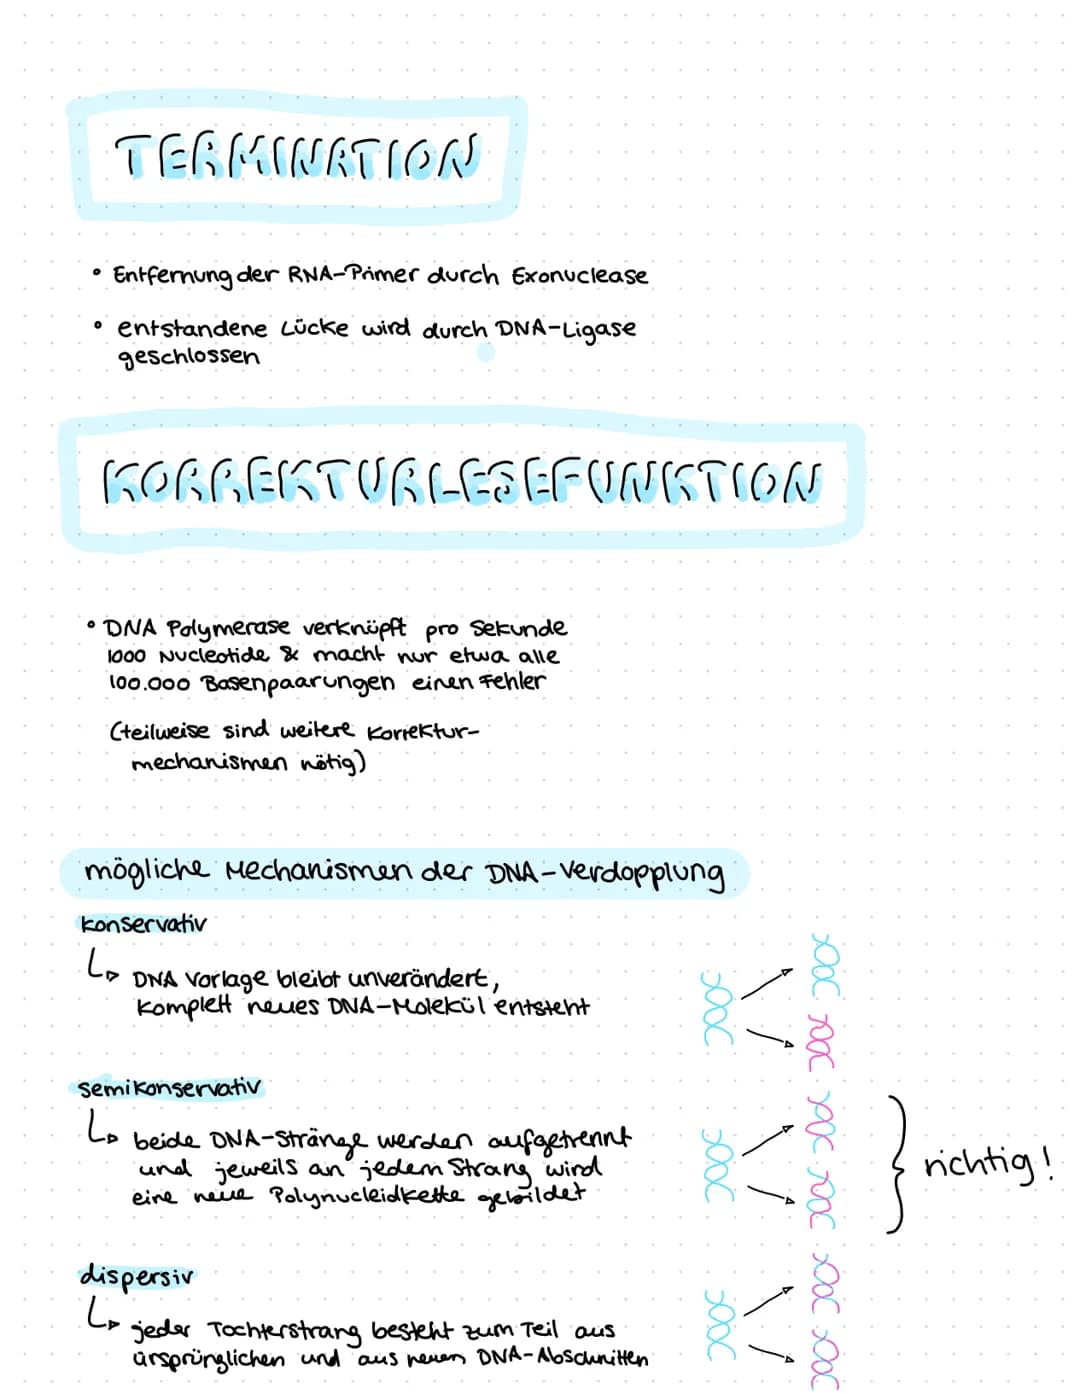 TERMINATION
• Entfernung der RNA-Primer durch Exonuclease
• entstandene Lücke wird durch DNA-Ligase
geschlossen
KORREKTURLESEFUNKTION
• DNA Polymerase verknüpft pro Sekunde
1000 Nucleotide & macht nur etwa alle
100.000 Basenpaarungen einen Fehler
(teilweise sind weitere Korrektur-
mechanismen nötig)
mögliche Mechanismen der DNA-Verdopplung
konservativ
↳ DNA Vorlage bleibt unverändert,
komplett neues DNA-Molekül entsteht
semikonservativ
↳ beide DNA-Stränge werden aufgetrennt
und jeweils an jedem Strang wird
eine neue Polynucleidkette gebildet
richtig!
dispersiv
↳ jeder Tochterstrang besteht zum Teil aus
ursprünglichen und aus neuen DNA-Abschnitten